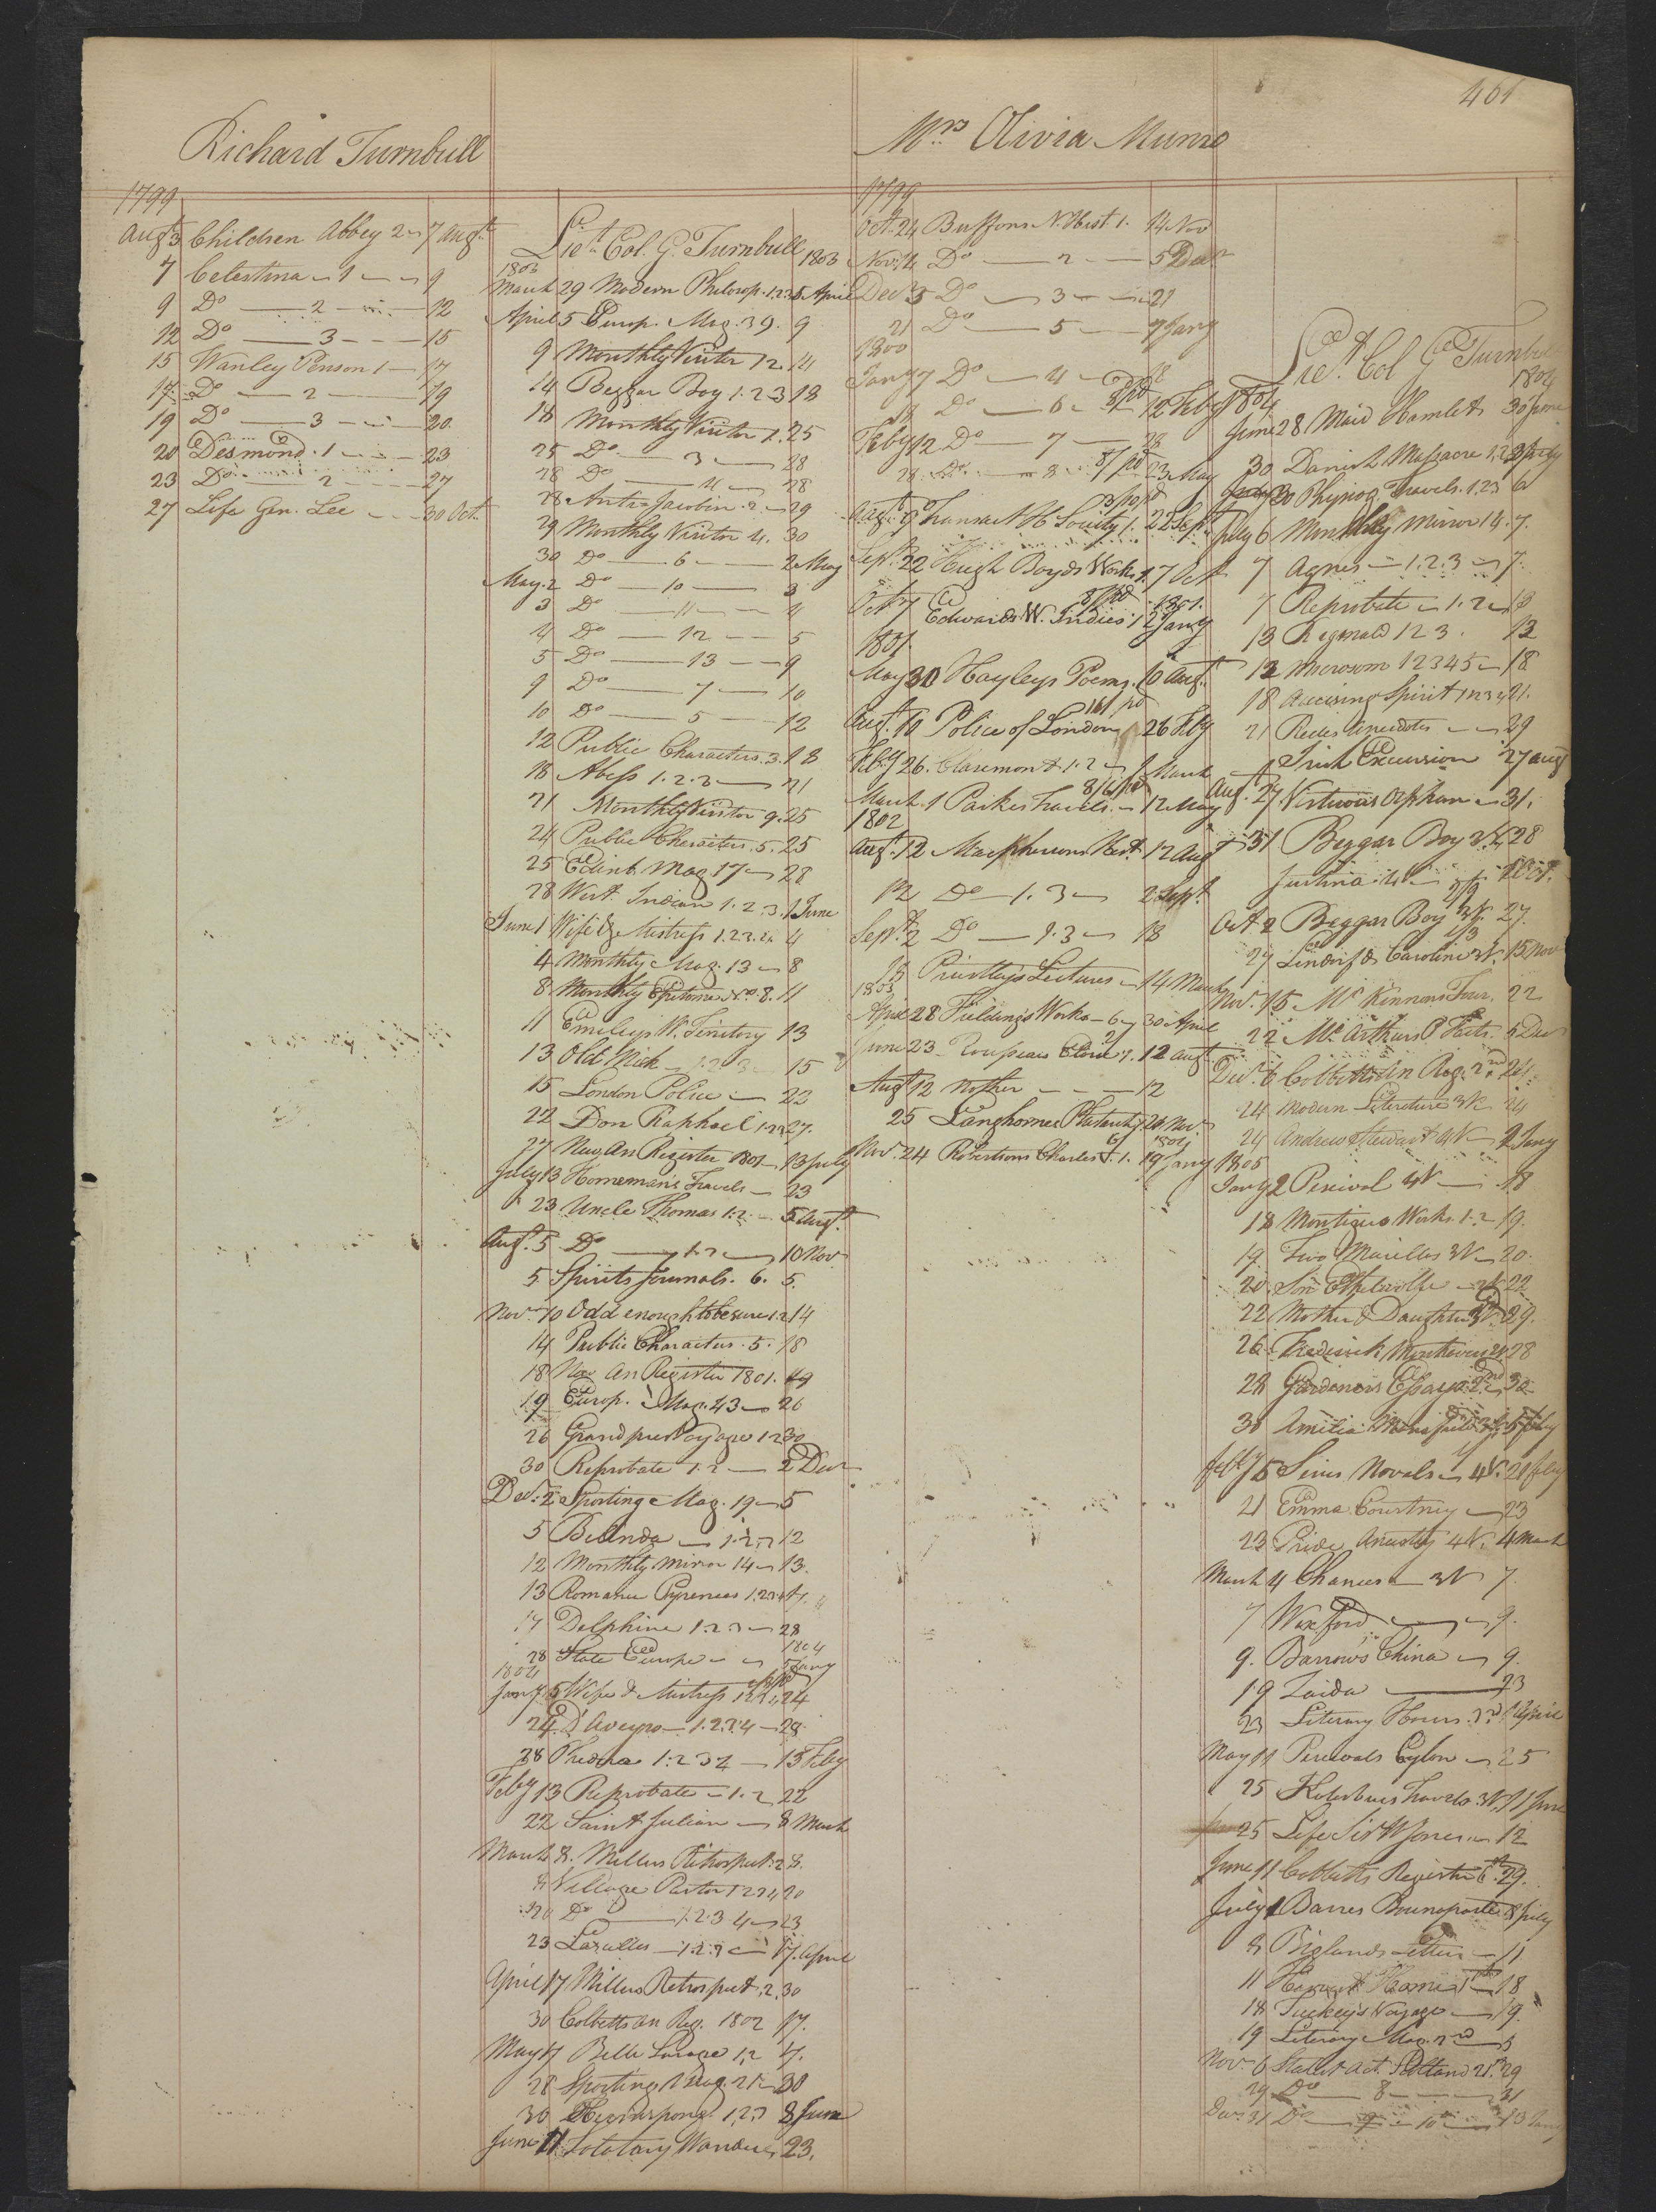 461
Richard Turnbull
1799
Augt 3 Children Abbey 2 7 Augt
7 Celestina 1 9
9 Do 2 12
12 Do 3 15
15 Wanley Penson 1 17
17 Do 2 19
19 Do 3 20
20 Desmond 1 23
23 Do 2 27
27 Life Gen. Lee 30 Oct.
Lieut. Col. G. Turnbull
1803 1803
March 29 Modern Philosop. 1.2.3 5 April
April 5 Europ. Mag. 39. 9
9 Monthly Visitor 12. 14
14 Beggar Boy 1.2.3 18
18 Monthly Visitor 1. 25
25 Do 3 28
28 Do 4 28
28 Anti-Jacobin 2 29
29 Monthly Visitor 4. 30
30 Do 6 2 May
May 2 Do 10 3
3 Do 11 4
4 Do 12 5
5 Do 13 9
9 Do 7 10
10 Do 5 12
12 Public Characters. 3. 18
18 Abess 1.2.3 21
21 Monthly Visitor 9. 25
24 Public Characters. 5. 25
25 Edinb. Mag 17 28
28 West Indian 1.2.3. 1 June
June 1 Wife & Mistress 1.2.3.4 4
4 Monthly Mag. 13 8
8 Monthly Epitome No. 8. 11
11 Emileys W. Teritory 13
13 Old Nick 1.2.3 15
15 London Police 22
22 Don Raphael 1.2.3 27.
27 New An Register 1801 13 July
July 13 Hornemans Travels 23
23 Uncle Thomas 1.2 5 Augt.
Augt. 5 Do 1.2 10 Nov
5 Spirits Journals. 6. 5.
Nov. 10 Odd enough to be sure 1.2 14
14 Public Characters. 5. 18
18 New An Register 1801. 19
19 Europ. Mag. 43 26
26 Grandpres Voyage 1.2 30
30 Reprobate 1.2 2 Decr
Decr. 2 Sporting Mag. 19 5
5 Belinda 1.2.3 12
12 Monthly Mirror 14 13.
13 Romance Pyrenees 1.2.3.4 17.
17 Delphine 1.2.3 28
1804
28 State Europe 5 Jany
1804
Jany 5 Wife & Mistress 1.2.3.4 24
24 D'Aveyro 1.2.3.4 28
28 Phedora 1.2.3.4 13 Feby
Feby 13 Reprobate 1.2 22
22 Saint Julian 8 March
March 8. Millers Retrospect. 2 8.
8 Village Pastor 1.2 20
20 Do 1.2.3.4 23
23 1.2.3 17. April
April 17 Millers Retrospect. 2. 30
30 Cobbetts An Reg. 1802 17.
May 17 Belle Savage 1.2 17.
28 Sporting Mag. 21 30
30 1.2.3 8 June
June 11 Solotary Wanderer 23.
Mrs Olivia Munro
1799
Oct. 24 Buffons N. Hist 1. 14 Nov
Nov. 14 Do 2 5 Decr
Decr. 5 Do 3 21
21 Do 5 7 Jany
1800
Jany 7 Do 4 18
18 Do 6 8/ pd 12 Feby
Feby 12 Do 7 28
28 Do 8 8/ pd 23 May
Augt. 9 Transact H Society 1. 22 Sept.
Sept. 22 Hugh Boyds Works 1. 7 Oct
8/ pd 1801.
Oct. 7 Edwards W. Indies 1 2 Jany
1801.
May 30 Hayleys Poems. 10 Augt.
16/ pd
Augt. 10 Police of London 26 Feby
Feby 26. Claremont 1.2 1 March
March 1 Parkes Travels 12 May
1802
Augt. 12 Macphersons Hist. 12 Augt
12 Do 1.3 2 Sept.
Sept. 2 Do 1.3 18
18 Priestleys Lectures 14 March
1803
April 28 Fieldings Works 6 30 April
June 23 Rouseaus Eloise 1. 12 Augt
Augt 12 Mother 12
25 Langhornes Plutarch 24 Nov
1804
Nov. 24 Robertsons Charles V. 1. 19 Jany
Lieut. Col Ge Turnbull
1804 1804
June 28 Maid Hamlet 30 June
30 Danish Massacre 1.2 July
30 Physiog. Travels. 1.2.3 6
July 6 Monthly Mirror 14. 7.
7 Agnes 1.2.3 7.
7 Reprobate 1.2 13
13 Reginald 1 2 3. 13
13 Microcosm 1 2 3 4 5 18
18 Accusing Spirit 1 2 3 4 21.
21 Recles Anecdotes 29
Irish Excursion 27 Augt
Aug. 27 Virtuous Orphan 31.
31 Beggar Boy 3V. 28
Justina 2 Oct.
Oct 2 Beggar Boy 3V. 27.
27 Lindorf & Caroline 3V. 15 Nov
Nov. 15 McKinnons Tour. 22
22 McArthurs P Facts. 6 Decr
Decr. 6 Cobbetts An Reg. 2nd 24.
24 Modern Literature 3V. 24
24 Andrew Stewart 4V 2 Jany
1805
Jany 2 Percival 4V 18
18 Montigue Works. 1.2 19.
19. Two Marillos 3V 20.
20. Sir Ethelwolfe 2V 22
22 Mother & Daughter 3V. 29.
26 Frederick Montravers 2V. 28
28 Gardenors Essays 2 30
30 Amelia Mansfield 3V. 5 Feby
Feby 5 Series Novels 4V. 21 Feby
21 Emma Courtney 23
23 Pride Ancestry 4V. 4 March
March 4 Chances 3V 7.
7 Wexford 9.
9. Barrows China 9.
19 Zaida 23
23 Literary Hours. 3rd. 1 April
May 11 Percivals Ceylon 25
25 Kotzebues Travels. 3V. 11 June
25 Life Sir W Jones 12
June 11 Cobbetts Register 6th 29.
July 1 Barres Bounaparte 8 July
8 Biglands Letters 11
11 18
18 Tuckeys Voyage 19.
19 Literary Mag. 2nd
Nov. 6 Statist Act. Scotland 21. 29
29 Do 8 31
Decr. 31 Do 9 10 13 Jany